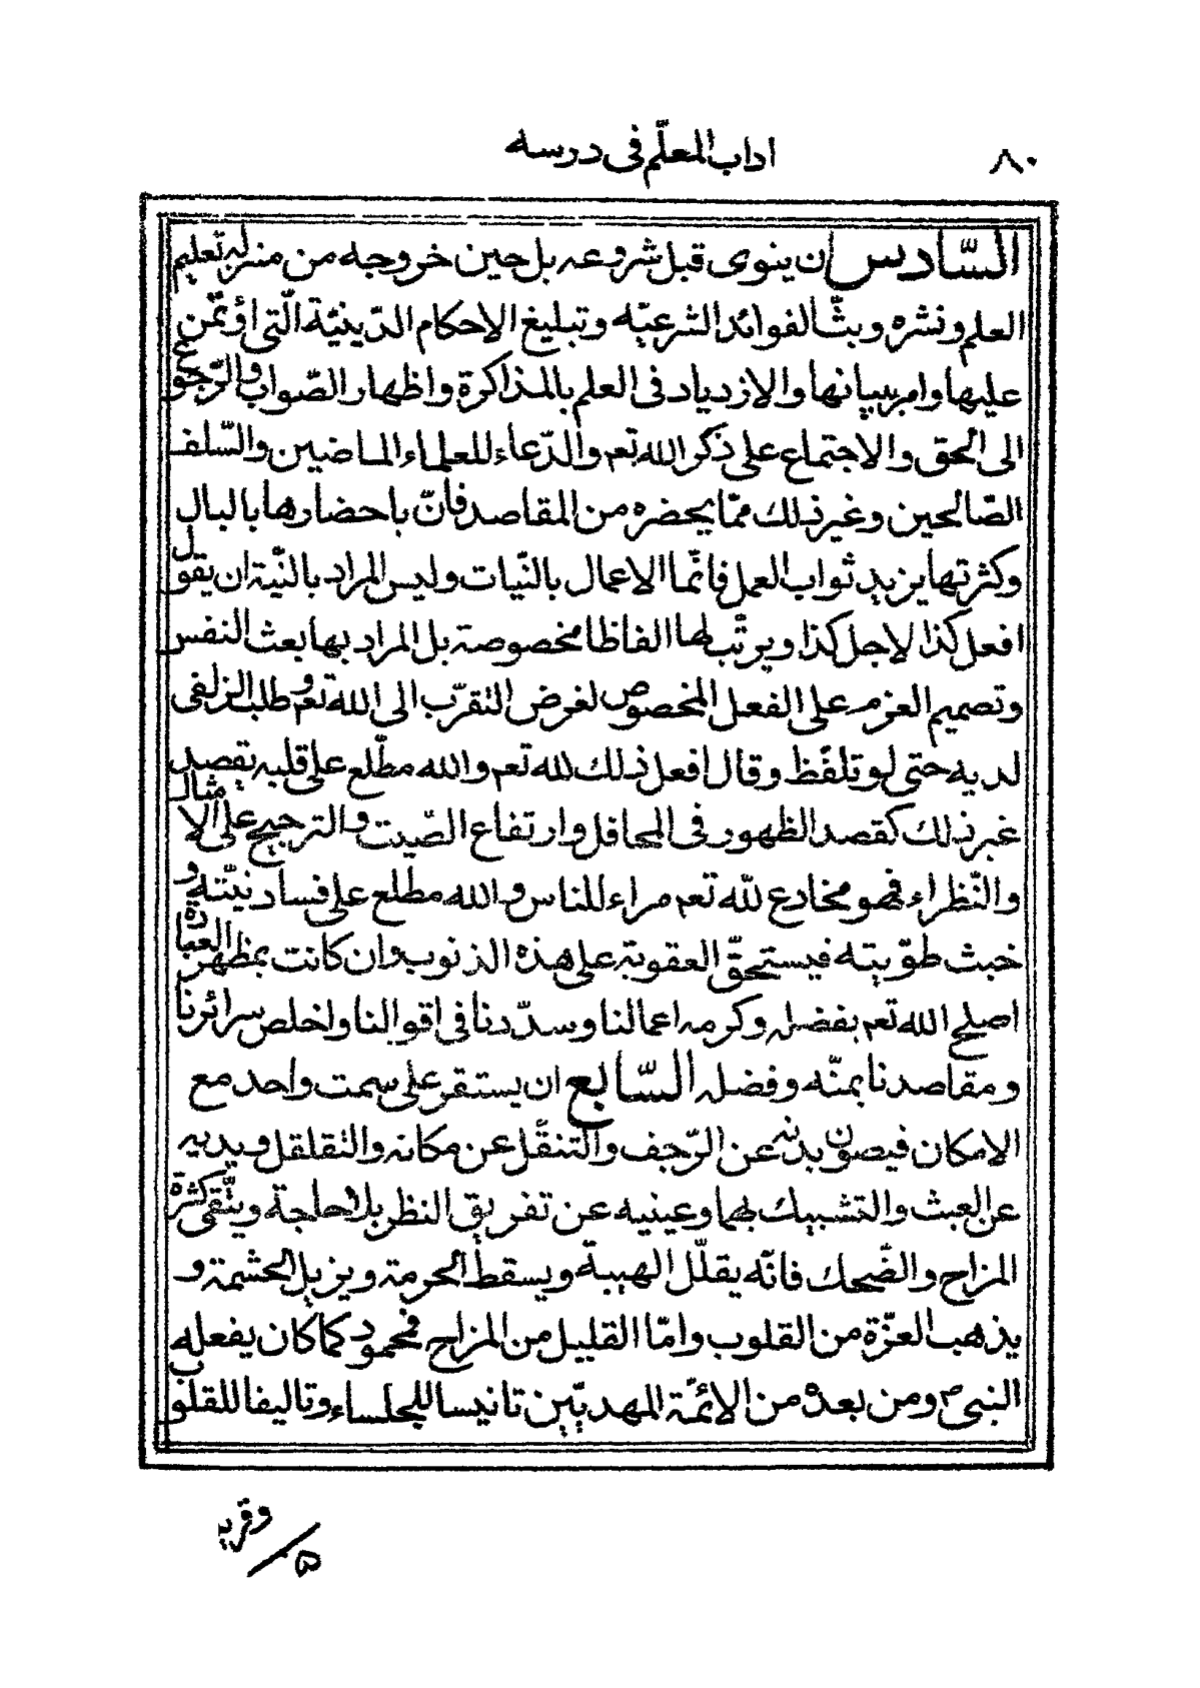 ٨٠
اداب المعلّم فى درسه
السّادس ان ينوى قبل شروعه بل حين خروجه من منزله تعليم
العلم ونشره وبثّ الفوائد الشرعيّه وتبليغ الاحكام الدّينيّة الّتى اؤتمن
عليها وامر ببيانها والازدياد فى العلم بالمذاكرة واظهار الصّواب والرّجوع
الى الحق والاجتماع على ذكر الله تعم والدّعاء للعلماء الماضين والسّلف
الصّالحين وغير ذلك ممّا يحضره من المقاصد فانّ باحضارها بالبال
وكثرتها يزيد ثواب العمل فانّما الاعمال بالنّيات وليس المراد بالنّية ان يقول
افعل كذا لاجل كذا ويرتّب لها الفاظا مخصوصة بل المراد بها بعث النفس
وتصميم العزم على الفعل المخصوص لغرض التقرّب الى الله تعم وطلب الزلفى
لديه حتى لو تلفّظ وقال افعل ذلك لله تعم والله مطّلع على قلبه تقصد
غير ذلك كقصد الظهور فى المحافل وارتفاع الصّيت والترجيح على الامثال
والنّظراء فهو مخادع لله تعم مراء للناس والله مطلع على فساد نيّته و
خبث طوّيته فيستحقّ العقوبة على هذه الذنوب وان كانت بمظهر العبادة
اصلح الله تعم بفضله وكرمه اعمالنا وسدّدنا فى اقوالنا واخلص سرائرنا
ومقاصدنا بمنّه وفضله السّابع ان يستقر على سمت واحد مع
الامكان فيصون بدنه عن الرّجف والتنقّل عن مكانه والتقلقل ويديه
عن العبث والتشبيك بهما وعينيه عن تفريق النظر بلا حاجة ويتّقى كثرة
المزاح والضّحك فانّه يقلّل الهيبة ويسقط الحرمة ويزيل الحشمة و
يذهب العزّة من القلوب وامّا القليل من المزاح فمحمود كما كان يفعله
النبى ص ومن بعده من الائمّة المهديّين تانيسا للجلساء وتاليفا للقلوب
وقريب
٥